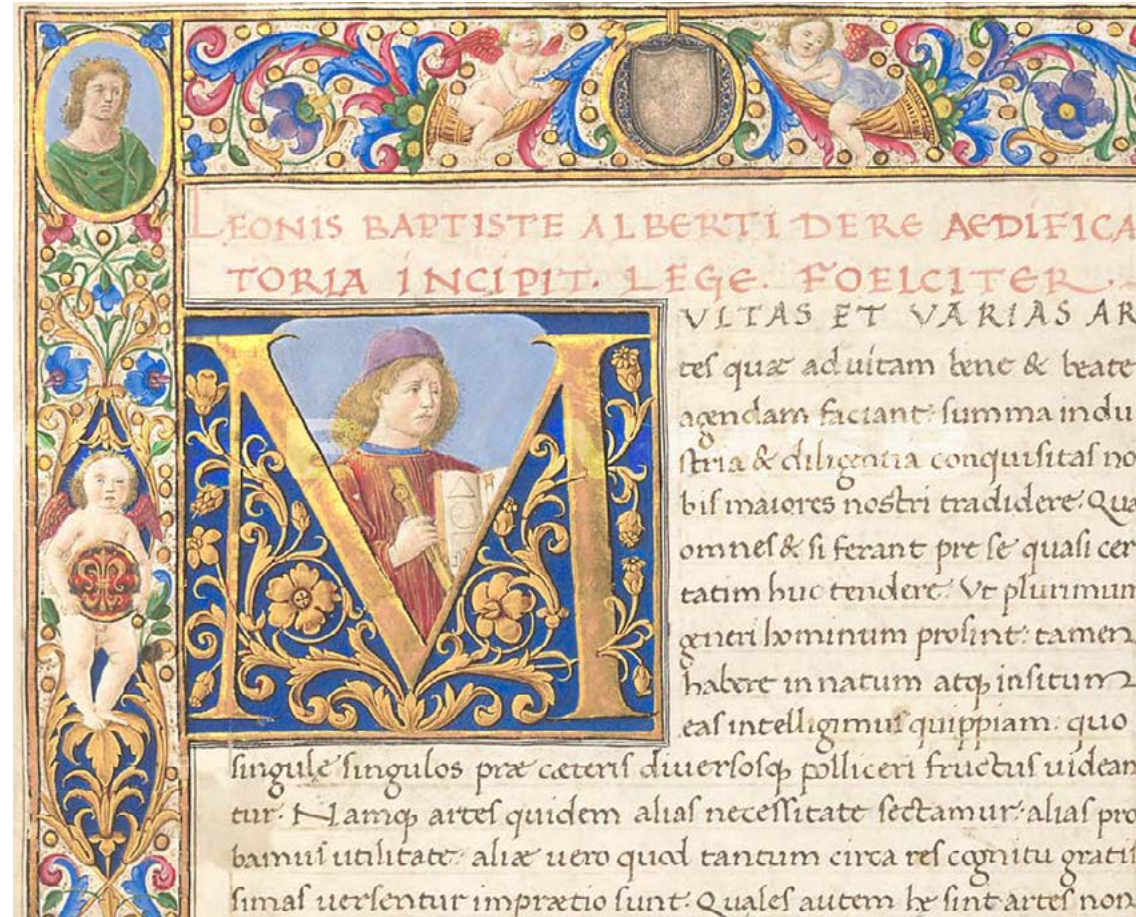 LEONIS BAPTISTE ALBERTI DE RE AEDIFICA
TORIA INCIPIT. LEGE. FOELCITER.
MVLTAS ET VARIAS AR
tes quæ ad uitam bene & beate
agendam faciant: summa indu
stria & diligentia conquisitas no
bis maiores nostri tradidere. Quæ
omnes & si ferant pre se quasi cer
tatim huc tendere: Vt plurimum
generi hominum prosint: tamen
habere innatum atq insitum
eas intelligimus quippiam: quo
singule singulos præ cæteris diuersosq polliceri fructus uidean
tur. Namq artes quidem alias necessitate sectamur: alias pro
bamus utilitate: aliæ uero quod tantum circa res cognitu gratis
simas uersentur in prætio sunt. Quales autem he sint artes non